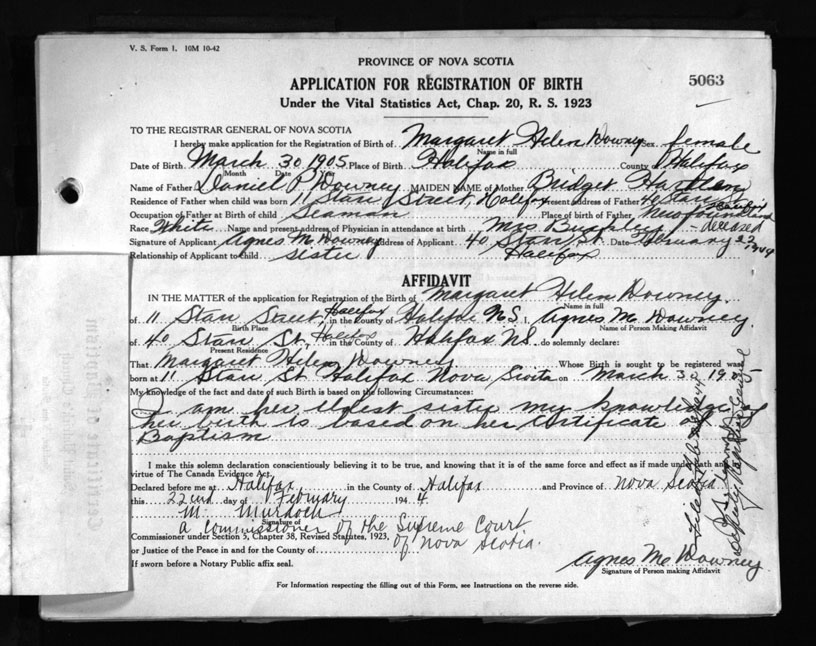 V. S. Form 1. 10M 10-42
PROVINCE OF NOVA SCOTIA
APPLICATION FOR REGISTRATION OF BIRTH
5063
Under the Vital Statistics Act, Chap. 20, R. S. 1923
TO THE REGISTRAR GENERAL OF NOVA SCOTIA
I hereby make application for the Registration of Birth of Margaret Helen Downey Sex female
Name in full
Date of Birth March 30 1905 Place of Birth Halifax County of Halifax
Month Date Year
Name of Father Daniel P Downey MAIDEN NAME of Mother Bridget Hartlen
Residence of Father when child was born 11 Starr Street, Halifax Present address of Father 40 Starr St
Occupation of Father at Birth of child Seaman Place of birth of Father Newfoundland
Race White Name and present address of Physician in attendance at birth Mrs - deceased
Signature of Applicant Agnes M. Downey Address of Applicant 40 Starr St. Date February 22 1944
Relationship of Applicant to child sister Halifax
AFFIDAVIT
IN THE MATTER of the application for Registration of the Birth of Margaret Helen Downey
Name in full
of 11 Starr Street, Halifax in the County of Halifax N.S. I, Agnes M. Downey
Birth Place Name of Person Making Affidavit
of 40 Starr St. Halifax in the County of Halifax NS. do solemnly declare:
Present Residence
That Margaret Helen Downey Whose Birth is sought to be registered was
born at 11 Starr St Halifax Nova Scotia on March 30 1905
My knowledge of the fact and date of such Birth is based on the following Circumstances:
I am her eldest sister my knowledge of
her birth is based on her Certificate of
Baptism
I make this solemn declaration conscientiously believing it to be true, and knowing that it is of the same force and effect as if made under oath and
virtue of The Canada Evidence Act.
Declared before me at Halifax in the County of Halifax and Province of Nova Scotia
this 22nd day of February 1944
M. Murdoch
Signature of
a Commissioner of the Supreme Court
Commissioner under Section 5, Chapter 38, Revised Statutes, 1923, of Nova Scotia.
or Justice of the Peace in and for the County of
If sworn before a Notary Public affix seal.
Agnes M. Downey
Signature of Person making Affidavit
For Information respecting the filling out of this Form, see Instructions on the reverse side.